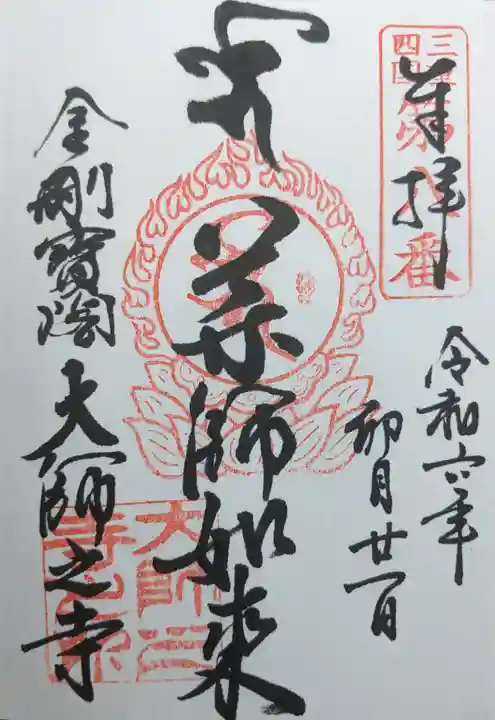 奉拝
三重
四国
第八番
令和六年
卯月廿一日
薬師如来
金剛寳閣
大師之寺
大師之
寺